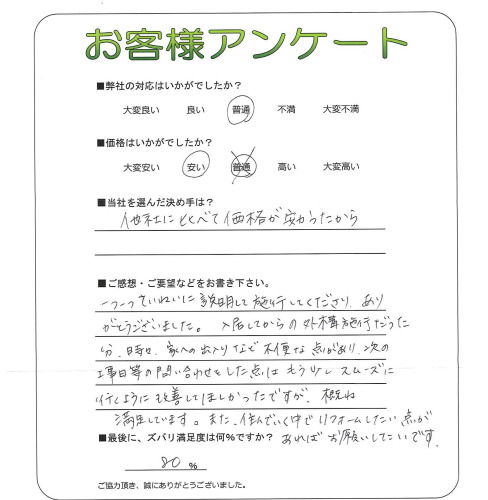 お客様アンケート
■弊社の対応はいかがでしたか?
大変良い 良い 普通 不満 大変不満
■価格はいかがでしたか?
大変安い 安い 普通 高い 大変高い
■当社を選んだ決め手は?
他社に比べて価格が安かったから
■ご感想・ご要望などをお書き下さい。
一つ一つていねいに説明して施行してくださり、あり
がとうございました。 入居してからの外構施行だった
分、日時々、家への出入りなど不便な点があり、次の
工事日等の問い合わせをした点はもう少しスムーズに
行くように改善してほしかったですが、概ね
満足しています。また、住んでいく中でリフォームしたい点が
■最後に、ズバリ満足度は何%ですか? あればお願いしたいです。
80 %
ご協力頂き、誠にありがとうございました。